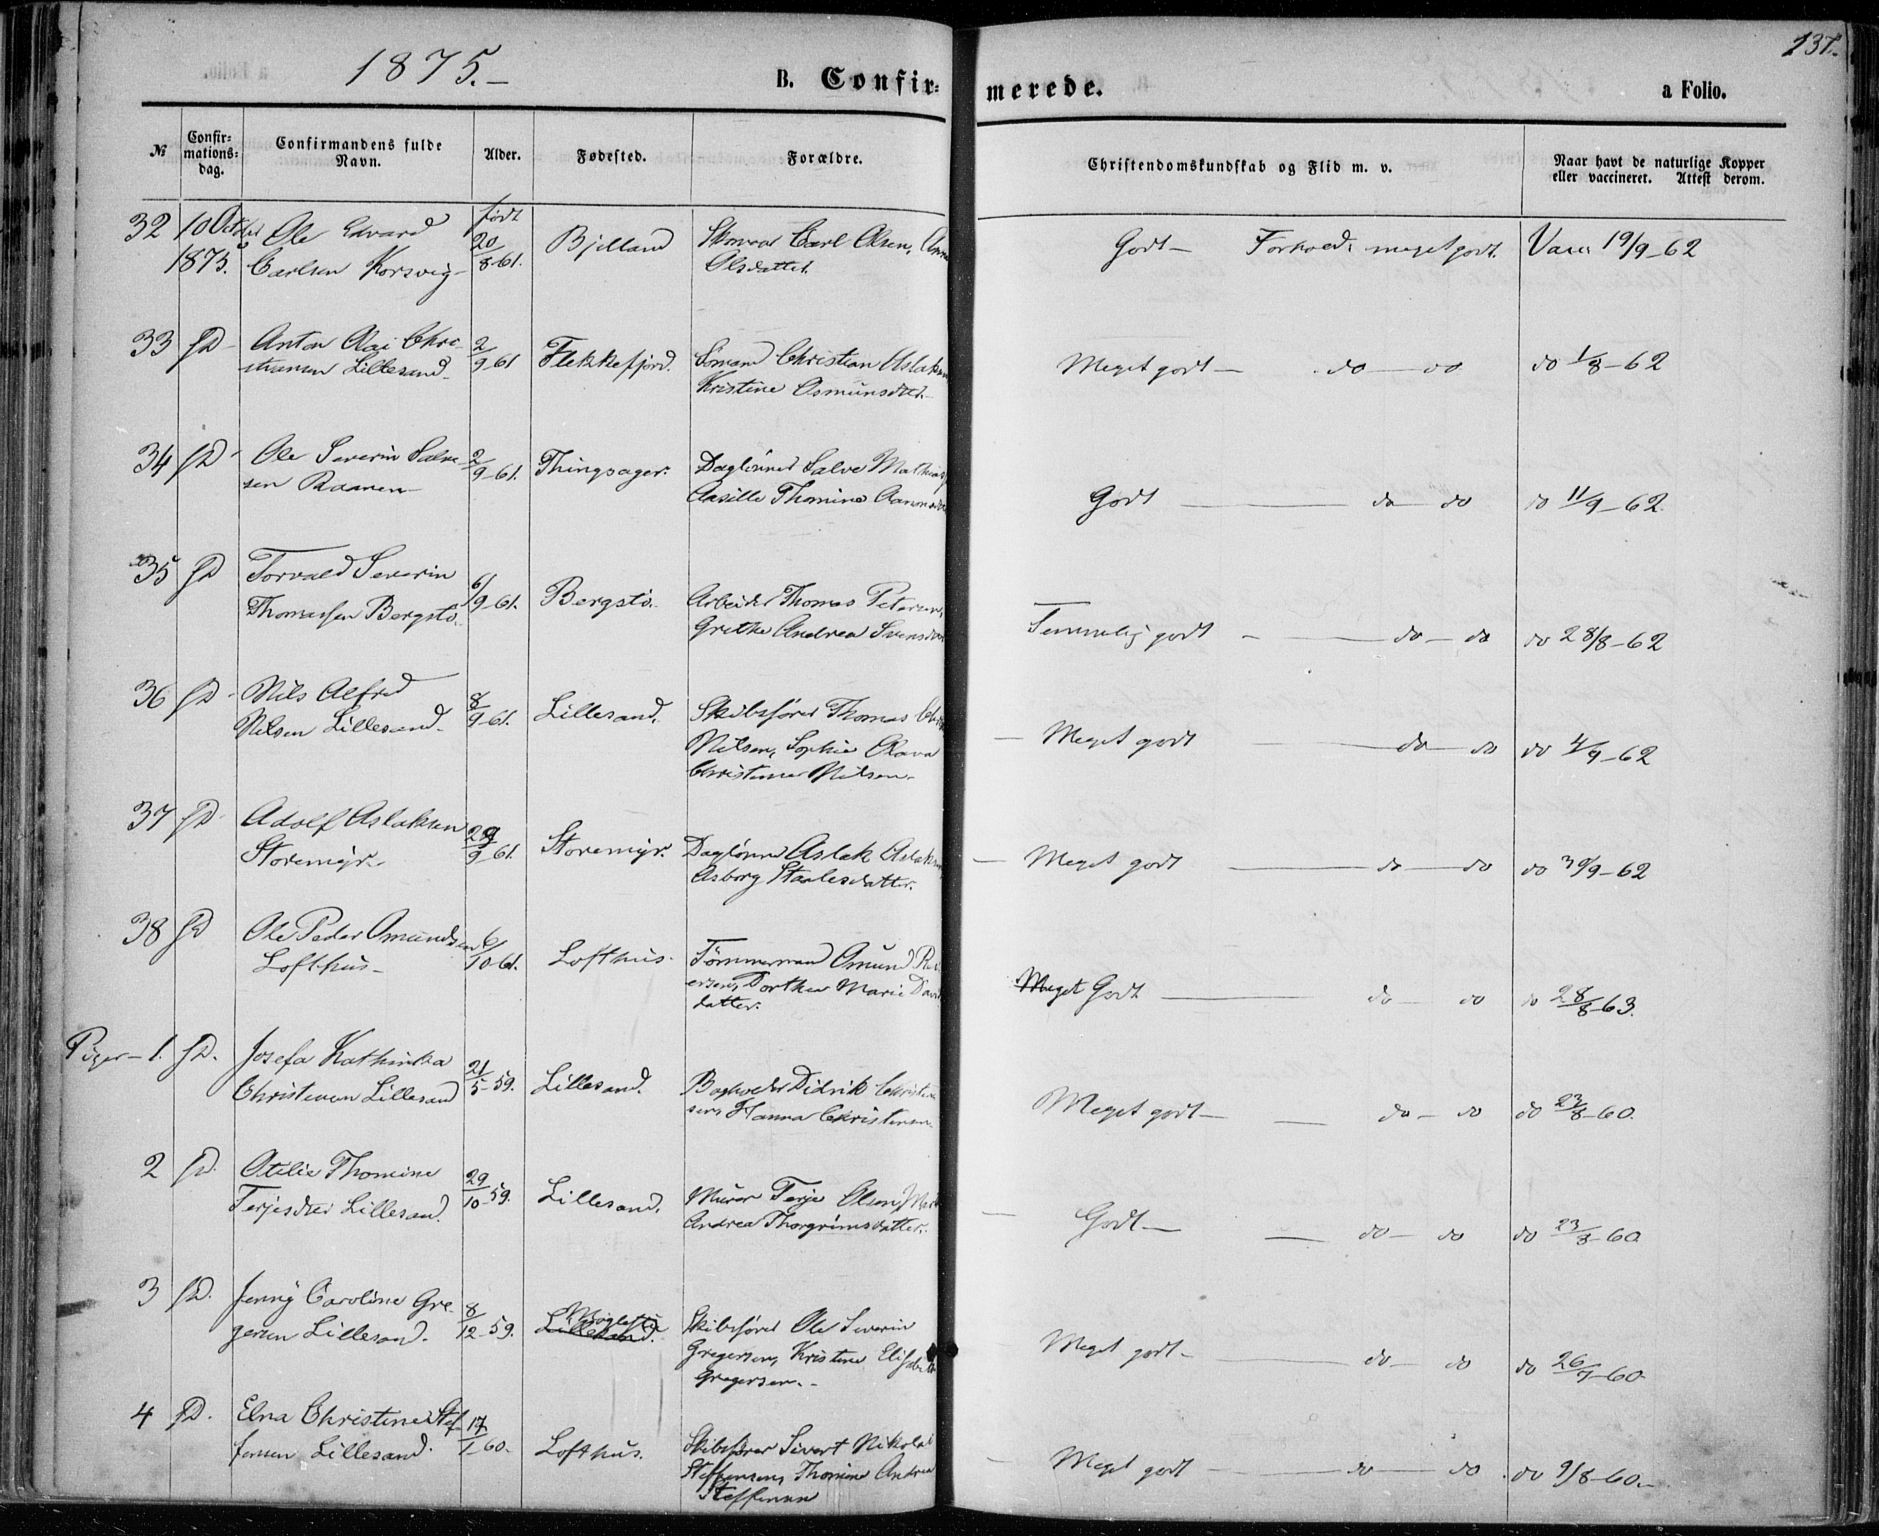 1875.-
B. Confir-
merede.
237.
a Folio.
№
Confir-
mations-
dag.
Confirmandens fulde
Navn.
Alder.
Fødested.
Forældre.
Christendomskundskab og Flid m. v.
Naar havt de naturlige Kopper
eller vaccineret. Attest derom.
født
32 10 Octbr Ole Edvard 20/8-61. Bjelland Carl Olsen, Anne
1875. Carlsen Korsvig- Olsdatter
Godt- Forhold: meget godt. Vacc 19/9-62
33 sD- Anton Olai Chri- 2/9 61 Flekkefjord. Sømand Christian Aslaksen
stiansen Lillesand. Kristine Osmundsdtr.-
Meget godt- do do do 1/8-62
34 sD- Ole Severin Salve- 2/9-61. Thingsager. Daglönner Salve Mathias
sen Thomine
Godt do do do 11/9-62.
35 sD Torvald Severin 6/9-61. Bergstö. Arbeider Thomas Petersen,
Thomassen Bergstö. Grethe Andrea Svensdtr
Temmelig godt - do- do do 28/8-62
36 sD- Nils Alfred 8/9-61. Lillesand. Skibsfører Thomas
Nilsen Lillesand. Nilsen, Sophie Olava
Christine Nilsen-
- Meget godt do- do do 4/9-62
37 sD- Adolf Aslaksen 29/9-61. Storemyr. Daglönner Aslak Aslaksen,
Storemyr.- Asborg Staalesdatter.
- Meget godt do- do do 30/9-62
38 sD Ole Peder Omundsen 6/10-61. Lofthus. Tömmermand Omund
Lofthus- Dorthea Marie David
datter.
Meget Godt do- do do 28/8-63.
Piger- 1. sD. Josefa Kathinka 21/5-59. Lillesand. Bagholder Didrik Christen
Christensen Lillesand sen, Hanna Christensen.
Meget godt- do- do do 23/8-60.
2 sD. Otilie Thomine 29/10-59. Lillesand. Murer Terje Olsen,
Terjesdtr Lillesand. Andrea Thorgrimsdatter.
- Godt- do- do do 23/8-60
3 sD. Jenny Caroline Gre- 8/12-59. Lillesand. Skibsfører Ole Severin
gersen Lillesand. Gregersen, Kristine Elisabeth
Gregersen.-
Meget godt- do- do do 26/7-60
4 sD. Elna Christine Stef- 17/1-60. Lofthus. Skibsfører Sivert Nikolai
fensen Lillesand. Steffensen, Thomine Andrea
Steffensen
- Meget godt do- do do 9/8-60.-